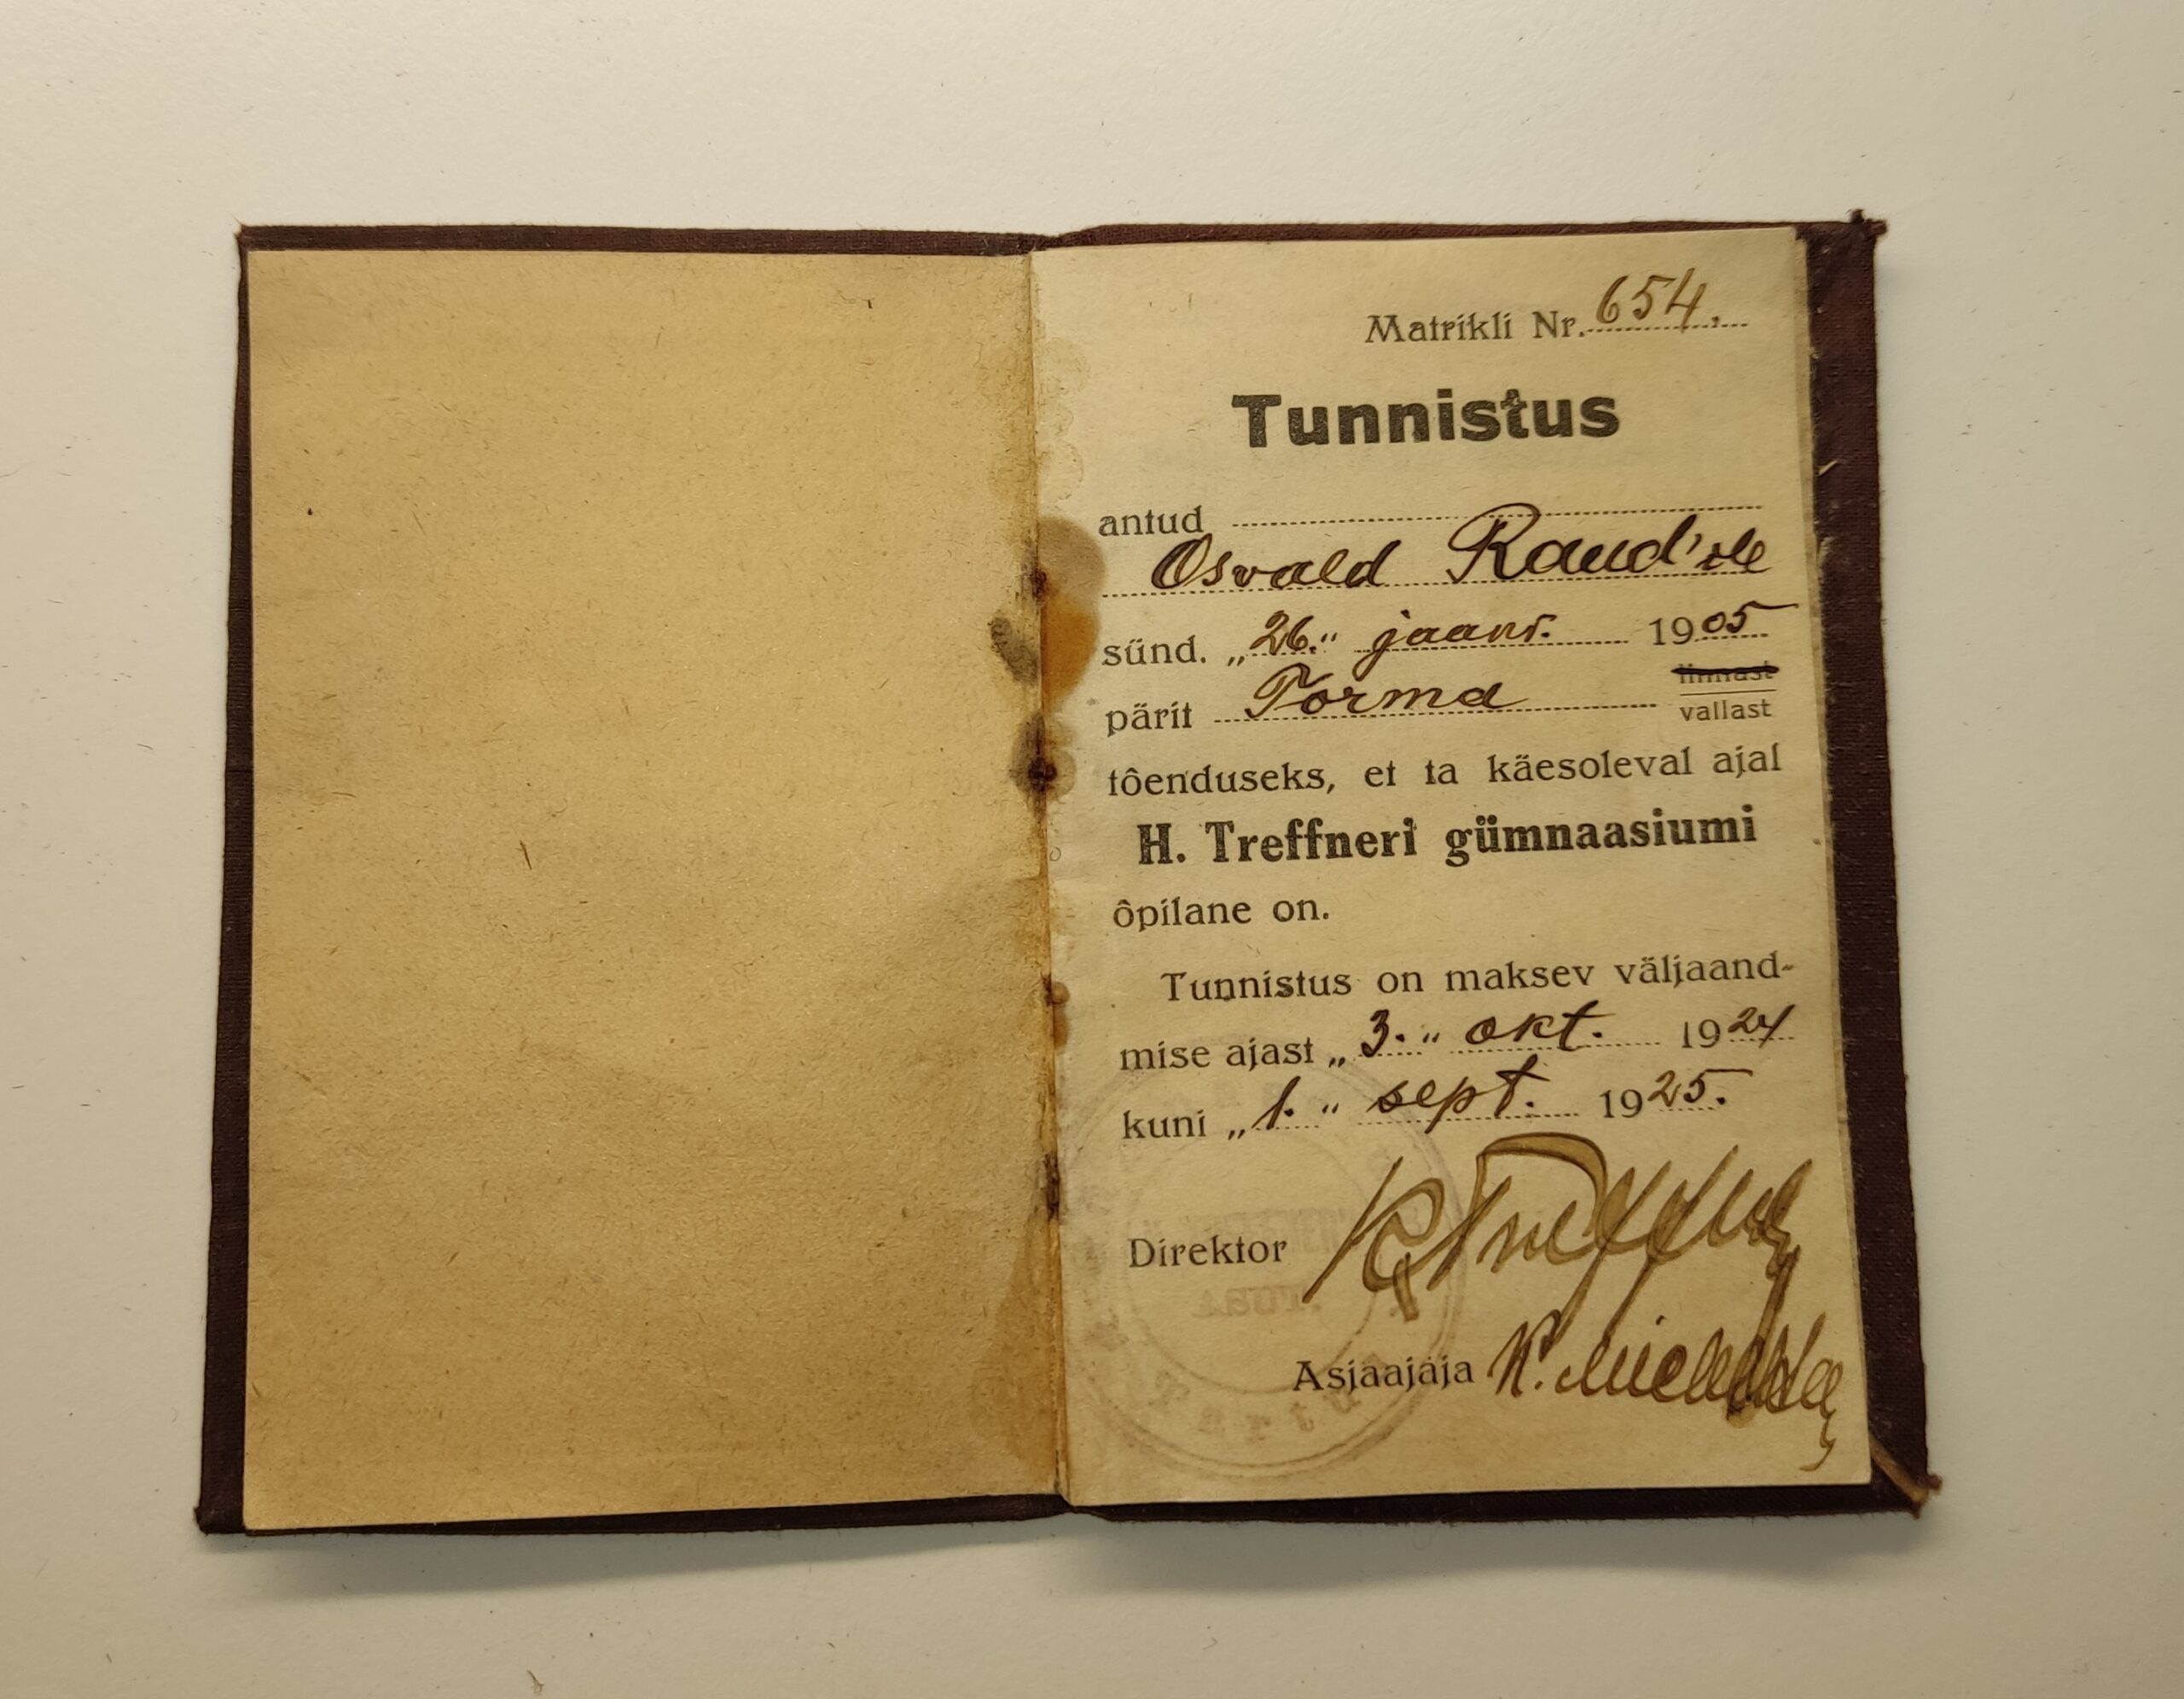 Matrikli Nr. 654.
Tunnistus
antud
Osvald Raud'ile
sünd. „26.“ jaanr. 1905
pärit Torma linnast
vallast
tôenduseks, et ta käesoleval ajal
H. Treffneri gümnaasiumi
ôpilane on.
Tunnistus on maksev väljaand-
mise ajast „3.“ okt. 1924
kuni „1.“ sept. 1925.
Direktor K Treffner
Asjaajaja K.